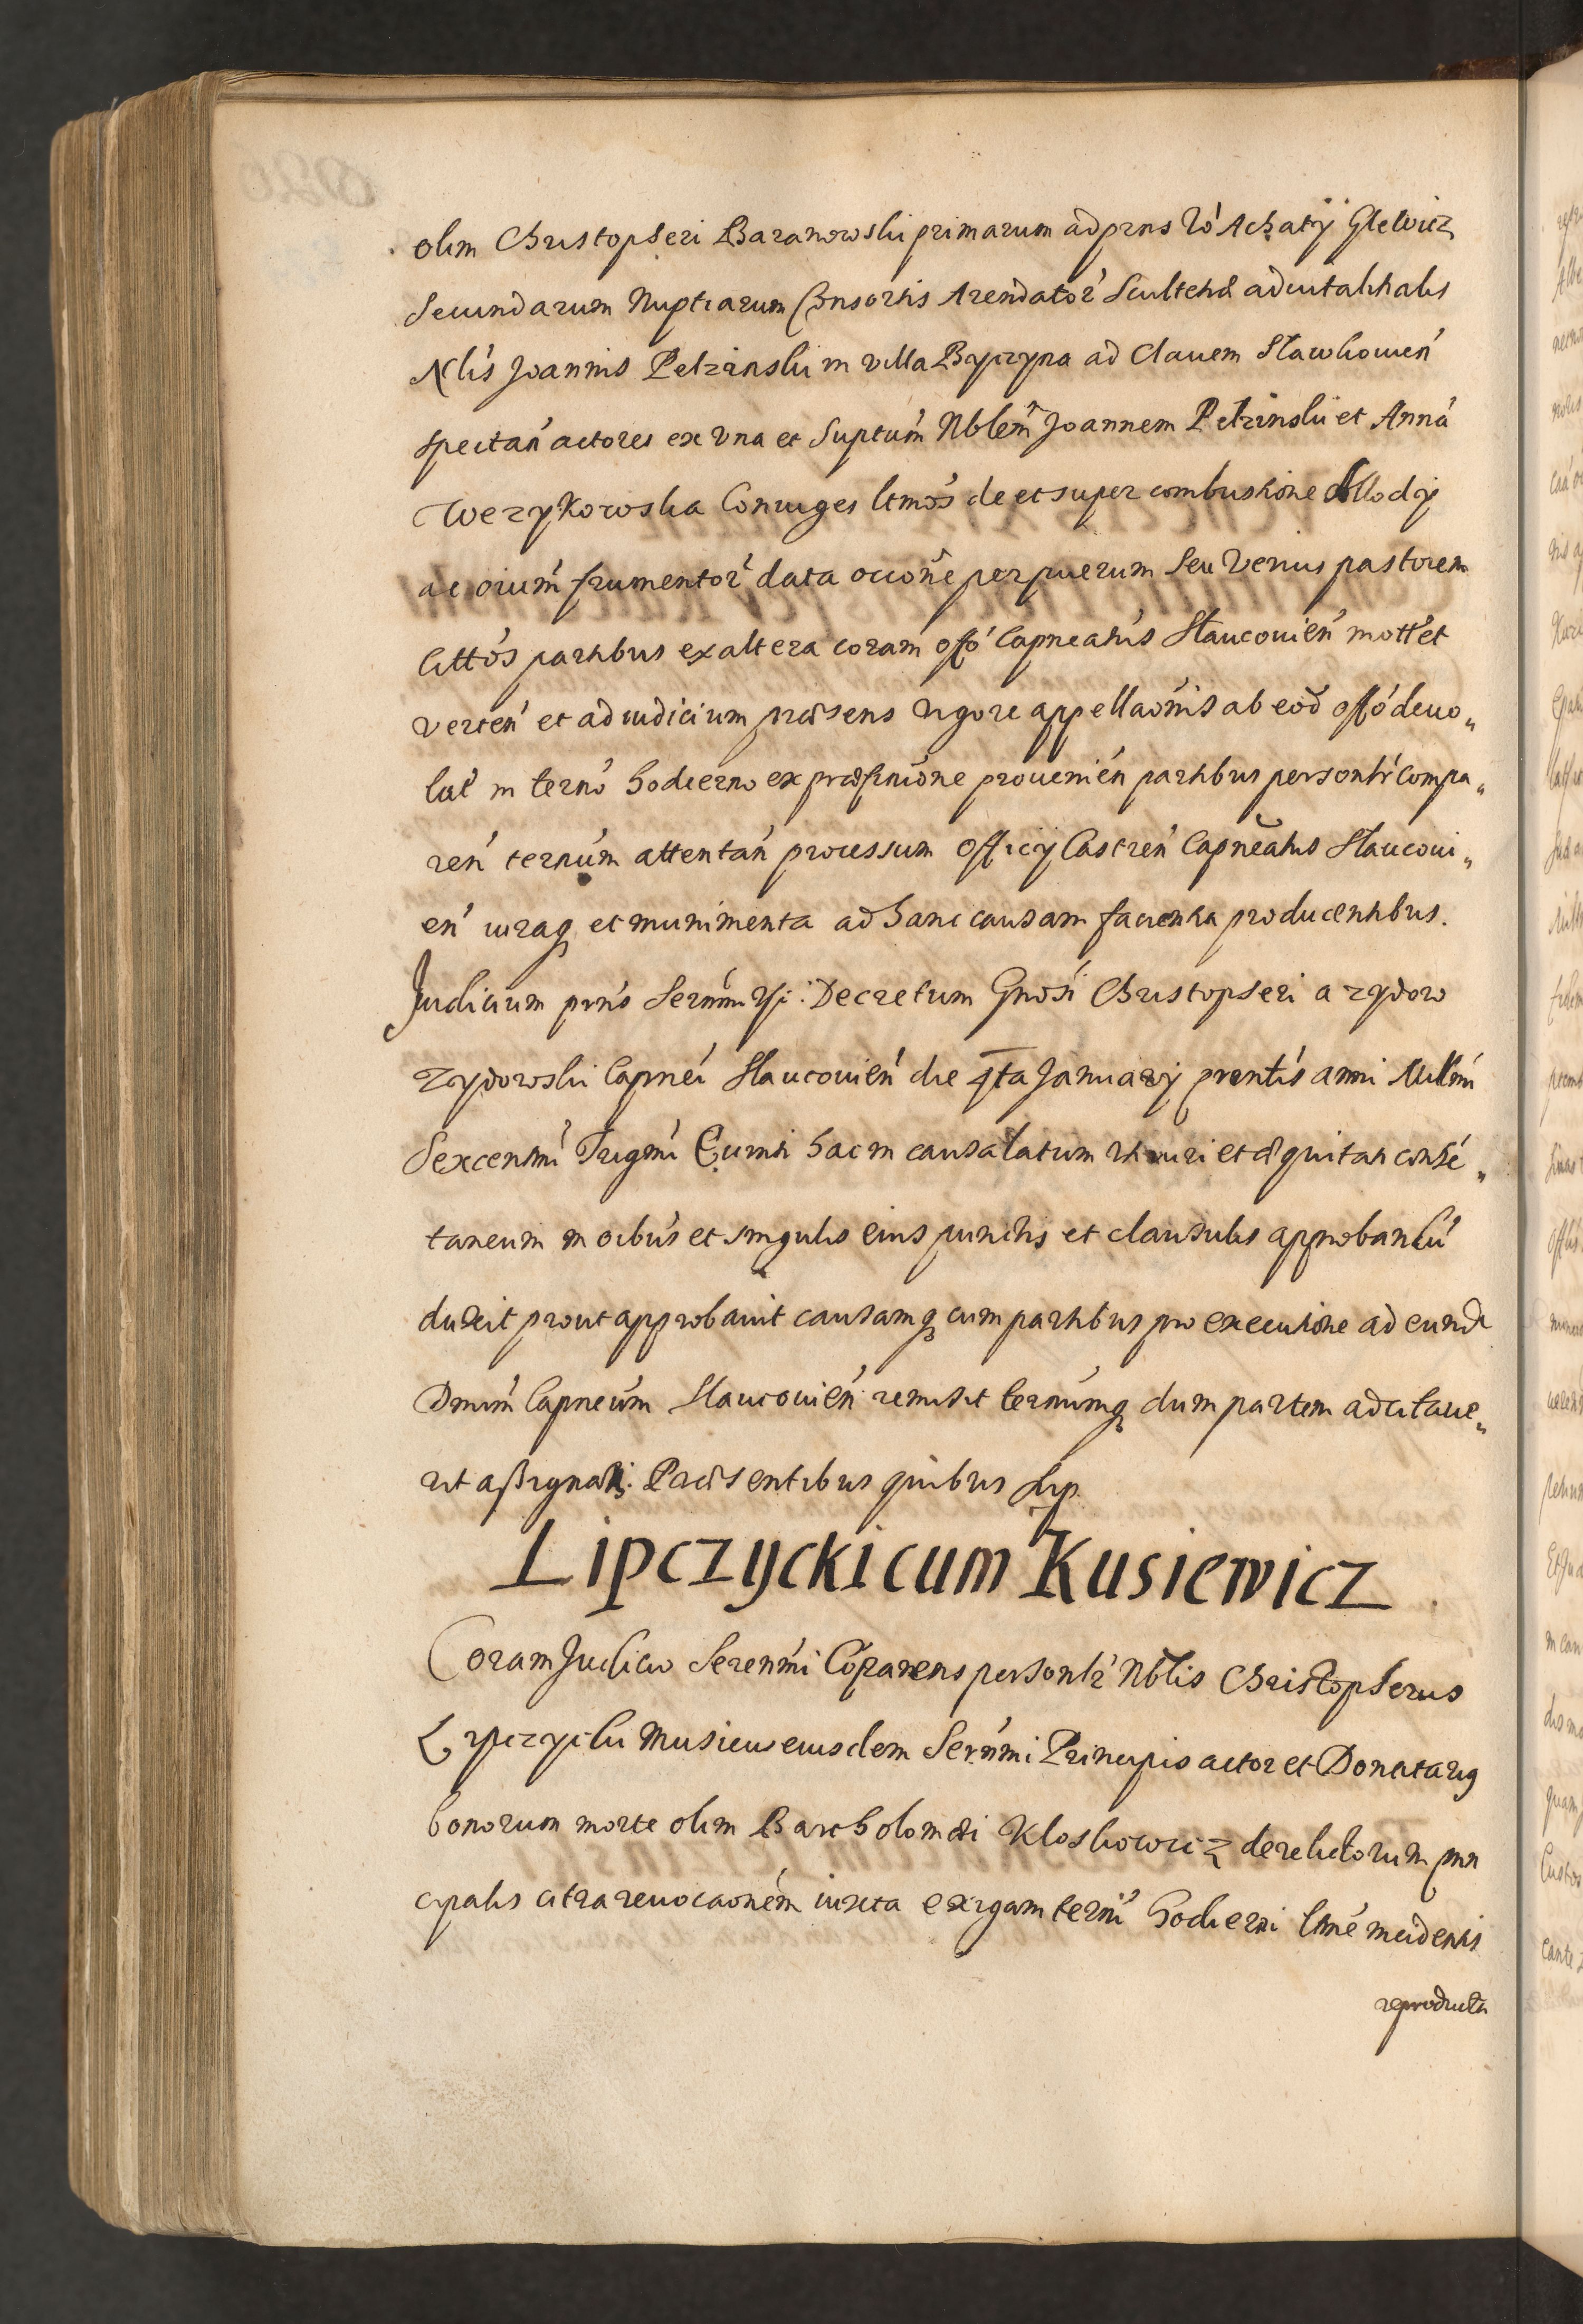 olim Christopheri Baranowski primarum ad prns vó Achatij Glewicz
secundarum Nuptiarum Consortis Arendator̃ Scultetiæ advitalitatis
Nlis Joannis Pelzinski in villa Byczyna ad Clauem Slawkouień
spectań actores ex vna et suptum Nblem Joannem Pelzinski et Anná
Wezykowska Coniuges ltmos de et super combustione Allodij
ac oium frumentor̃ data occone per puerum seu verius pastorem
Cittos partibus ex altera coram offó Capneatus Slaucouień mott et
verteń et ad iudicium præsens vigore appellaonis ab eod̃ offó deuo„
lut̃ in termo hodierno ex præfinione prouenień partibus personłr compa„
reń ternum attentań processum Officij Castreń Capneatus Slaucoui„
eń iuraq et munimenta ad hanc causam facientia producentibus.
Judicium prns Serenmi Pṙi: Decretum Gnosi Christopheri a zydow
zydowski Capnei Slaucouień die 4ta Januarij prentis anni Millmi
Sexcentmi Trigmi Quinti hac in causa latum vti iuri et æquitati consé„
taneum in oibus et singulis eius punctis et clausulis approbandú
duxit prout approbauit causamq cum partibus pro executione ad eund
Dnum Capneum Slaucouień remisit ternumq dum partem adcitaue„
rit assignauit. Præsentibus quibus sup
Lipczycki cum Kusiewicz
Coram Judicio Serenmi Coparens personłr Nblis Christopherus
Lypczycki Musicus eiusdem Sernmi Principis actor et Donatarig
bonorum morte olim Bartholomæi Kloskowicz derelictorum prin
cipalis citra reuocaonem iuxta exigam terni hodierni ltme incidentis
reproducta